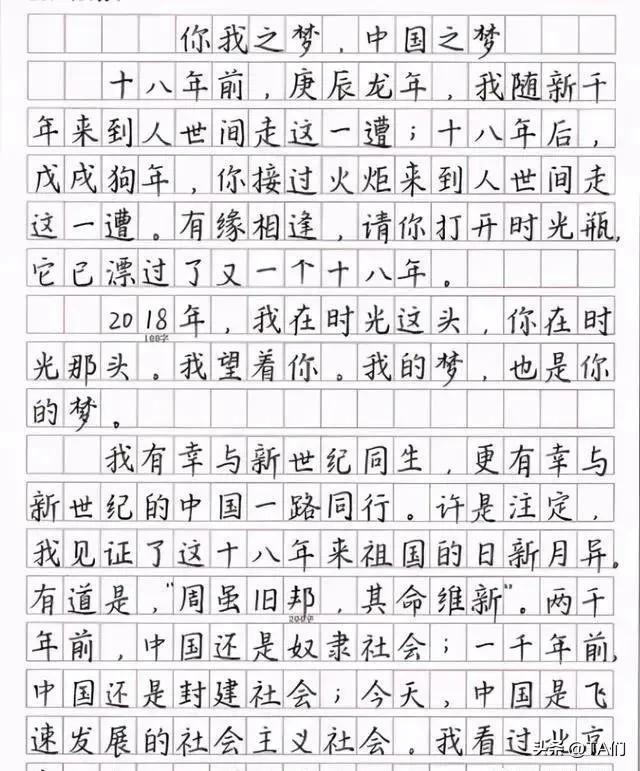 你我之梦，中国之梦
十八年前，庚辰龙年，我随新千
年来到人世间走这一遭；十八年后，
戊戌狗年，你接过火炬来到人世间走
这一遭。有缘相逢，请你打开时光瓶，
它已漂过了又一个十八年。
2018年，我在时光这头，你在时
100字
光那头。我望着你。我的梦，也是你
的梦。
我有幸与新世纪同生，更有幸与
新世纪的中国一路同行。许是注定，
我见证了这十八年来祖国的日新月异。
有道是，“周虽旧邦，其命维新”。两千
200字
年前，中国还是奴隶社会；一千年前，
中国还是封建社会；今天，中国是飞
速发展的社会主义社会。我看过北京
头条@TA们